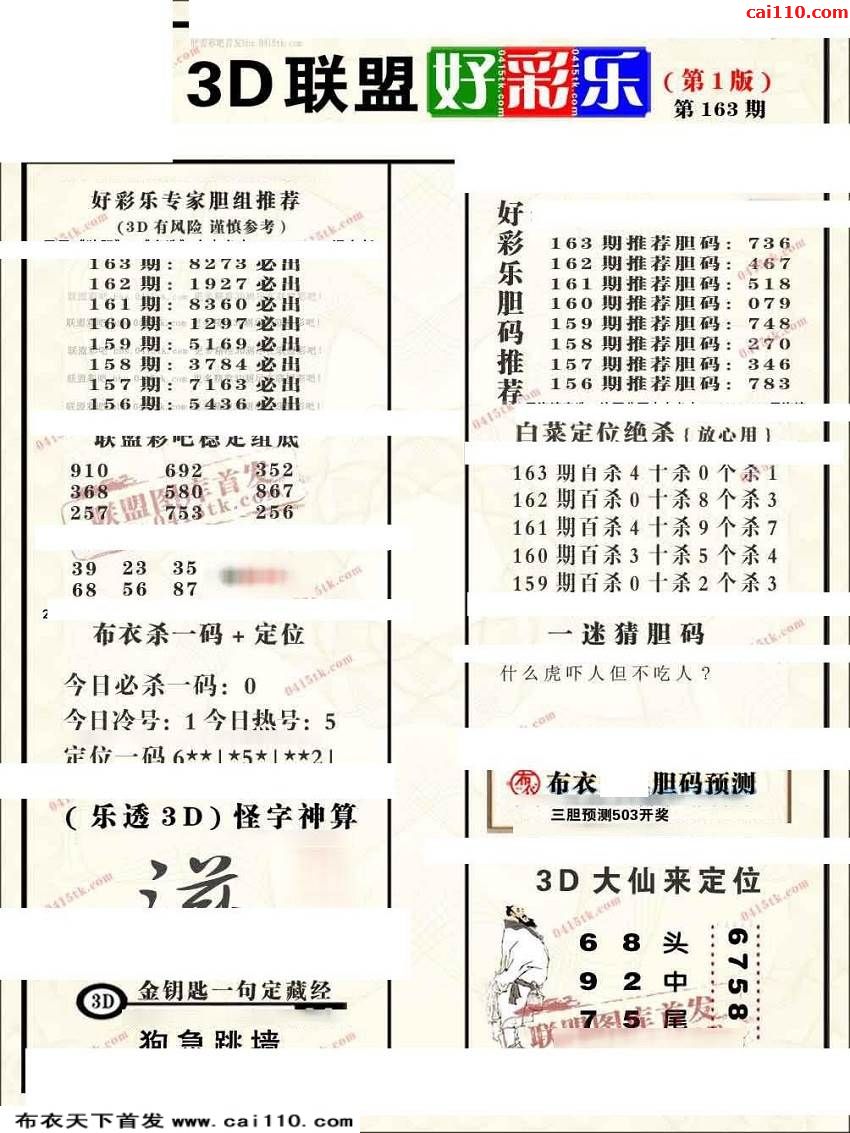 cai110.com
3D联盟好彩乐
(第1版)
第163期
好彩乐专家胆组推荐
(3D有风险 谨慎参考)
163期:8273必出
162期:1927必出
161期:8360必出
160期:1297必出
159期:5169必出
158期:3784必出
157期:7163必出
156期:5436必出
联盟彩吧稳定组底
910 692 352
368 580 867
257 753 256
39 23 35
68 56 87
布衣杀一码+定位
今日必杀一码:0
今日冷号:1今日热号:5
定位一码6**|*5*|**2|
(乐透3D)怪字神算
3D
金钥匙一句定藏经
狗急跳墙
好彩乐胆码推荐
163期推荐胆码:736
162期推荐胆码:467
161期推荐胆码:518
160期推荐胆码:079
159期推荐胆码:748
158期推荐胆码:270
157期推荐胆码:346
156期推荐胆码:783
白菜定位绝杀{放心用}
163期百杀4十杀0个杀1
162期百杀0十杀8个杀3
161期百杀4十杀9个杀7
160期百杀3十杀5个杀4
159期百杀0十杀2个杀3
一迷猜胆码
什么虎吓人但不吃人?
布 布衣 胆码预测
三胆预测503开奖
3D大仙来定位
6 8头
9 2中
7 5尾
6758
联盟图库首发
0415tk.com
布衣天下首发 www.cai110.com